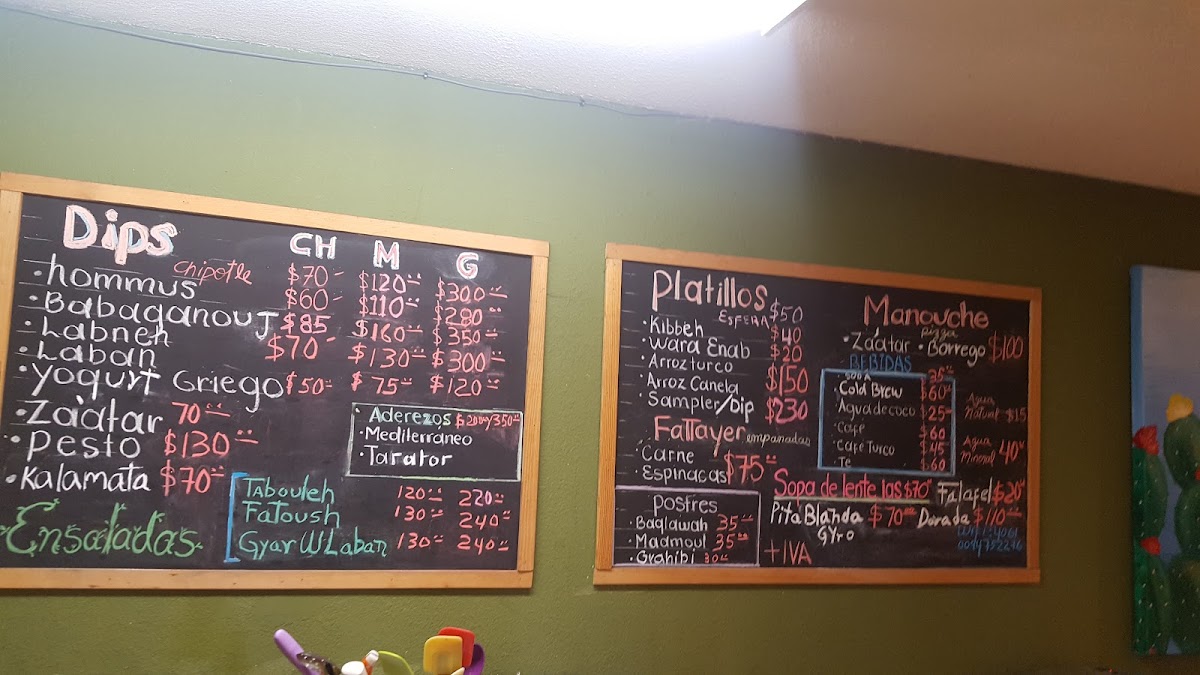 Dips CH M G
· hommus chipotle $70 $120 $300
· Babaganouj $60 $110 $280
· Labneh $85 $160 $350
· Laban $70 $130 $300
· yogurt Griego $50 $75 $120
· Za'atar 70
· Pesto $130
· Kalamata $70
Aderezos
· Mediterraneo
· Tarator
Ensaladas
Tabouleh 120 220
Fatoush 130 240
Gyar W Laban 130 240
Platillos
· Kibbeh ESFERA $50
· Wara Enab $40
· Arroz turco $20
· Arroz Canela $150
· Sampler/Dip $230
Fattayer empanadas
· Carne
· Espinacas $75
Postres
· Baqlawah 35
· Madmoul 35
· Grahibi 30
Manouche
· Za'atar pizza
· Borrego $100
BEBIDAS
Soda 35
· Cold Brew $60
· Agua de coco $25
· Cafe $60
· Café Turco $45
· Te $60
Agua Natural $15
Agua Mineral 40
Sopa de lentellas $70
Falafel $20
Pita Blanda $70 Dorada $110
Gyro
+IVA